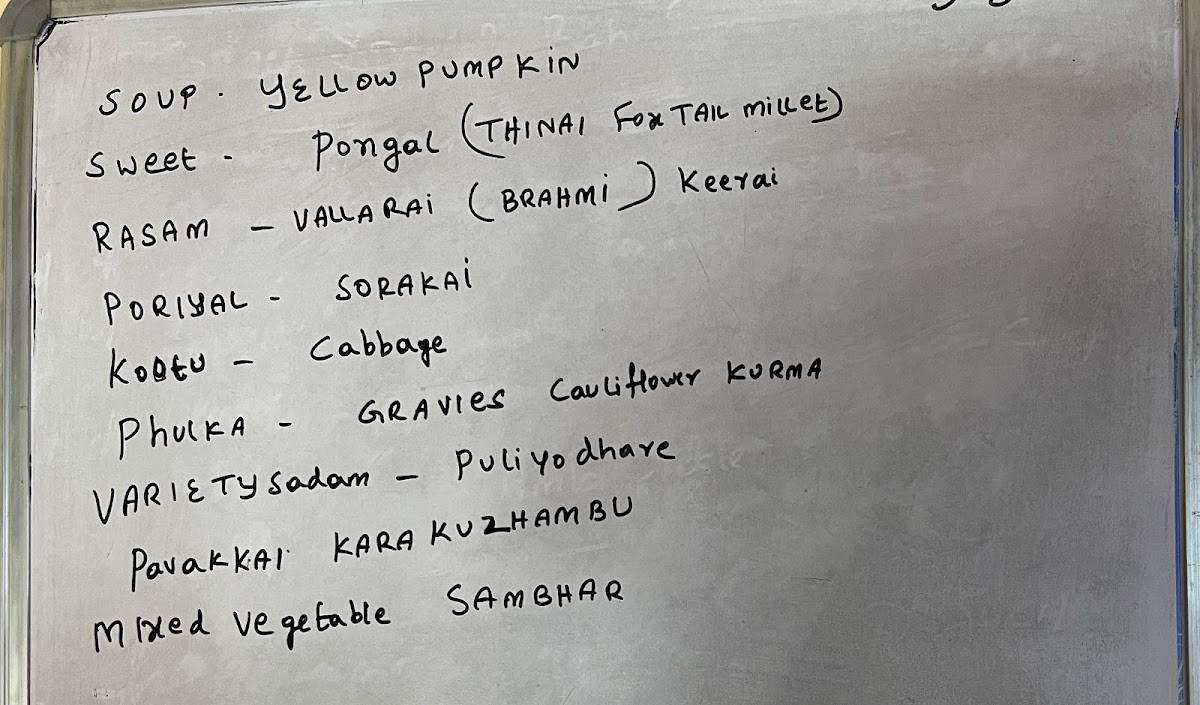 SOUP - YELLOW PUMPKIN
Sweet - Pongal (THINAI FOXTAIL millet)
RASAM - VALLARAI (BRAHMI) Keerai
PORIYAL - SORAKAI
Kootu - Cabbage
PhulKA - GRAVIES Cauliflower KURMA
VARIETY Sadam - Puliyodhare
PavaKKAI KARA KUZHAMBU
Mixed vegetable SAMBHAR